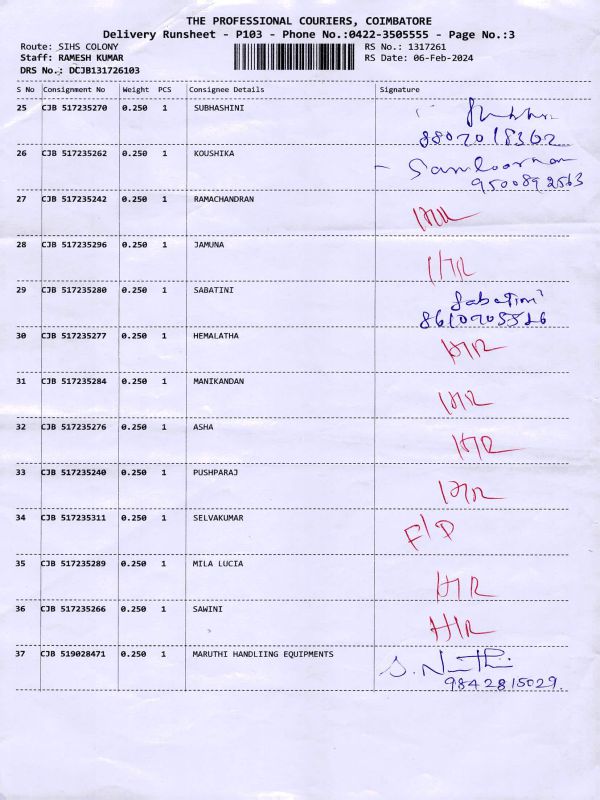 THE PROFESSIONAL COURIERS, COIMBATORE
Delivery Runsheet - P103 - Phone No.:0422-3505555 - Page No.:3
Route: SIHS COLONY RS No.: 1317261
Staff: RAMESH KUMAR RS Date: 06-Feb-2024
DRS No.: DCJB131726103
S No Consignment No Weight PCS Consignee Details Signature
25 CJB 517235270 0.250 1 SUBHASHINI
8807018362
26 CJB 517235262 0.250 1 KOUSHIKA
9500892563
27 CJB 517235242 0.250 1 RAMACHANDRAN
28 CJB 517235296 0.250 1 JAMUNA
29 CJB 517235280 0.250 1 SABATINI Sabatini
8610705526
30 CJB 517235277 0.250 1 HEMALATHA
31 CJB 517235284 0.250 1 MANIKANDAN
32 CJB 517235276 0.250 1 ASHA
33 CJB 517235240 0.250 1 PUSHPARAJ
34 CJB 517235311 0.250 1 SELVAKUMAR
35 CJB 517235289 0.250 1 MILA LUCIA
36 CJB 517235266 0.250 1 SAWINI
37 CJB 519028471 0.250 1 MARUTHI HANDLIING EQUIPMENTS
9842815029.